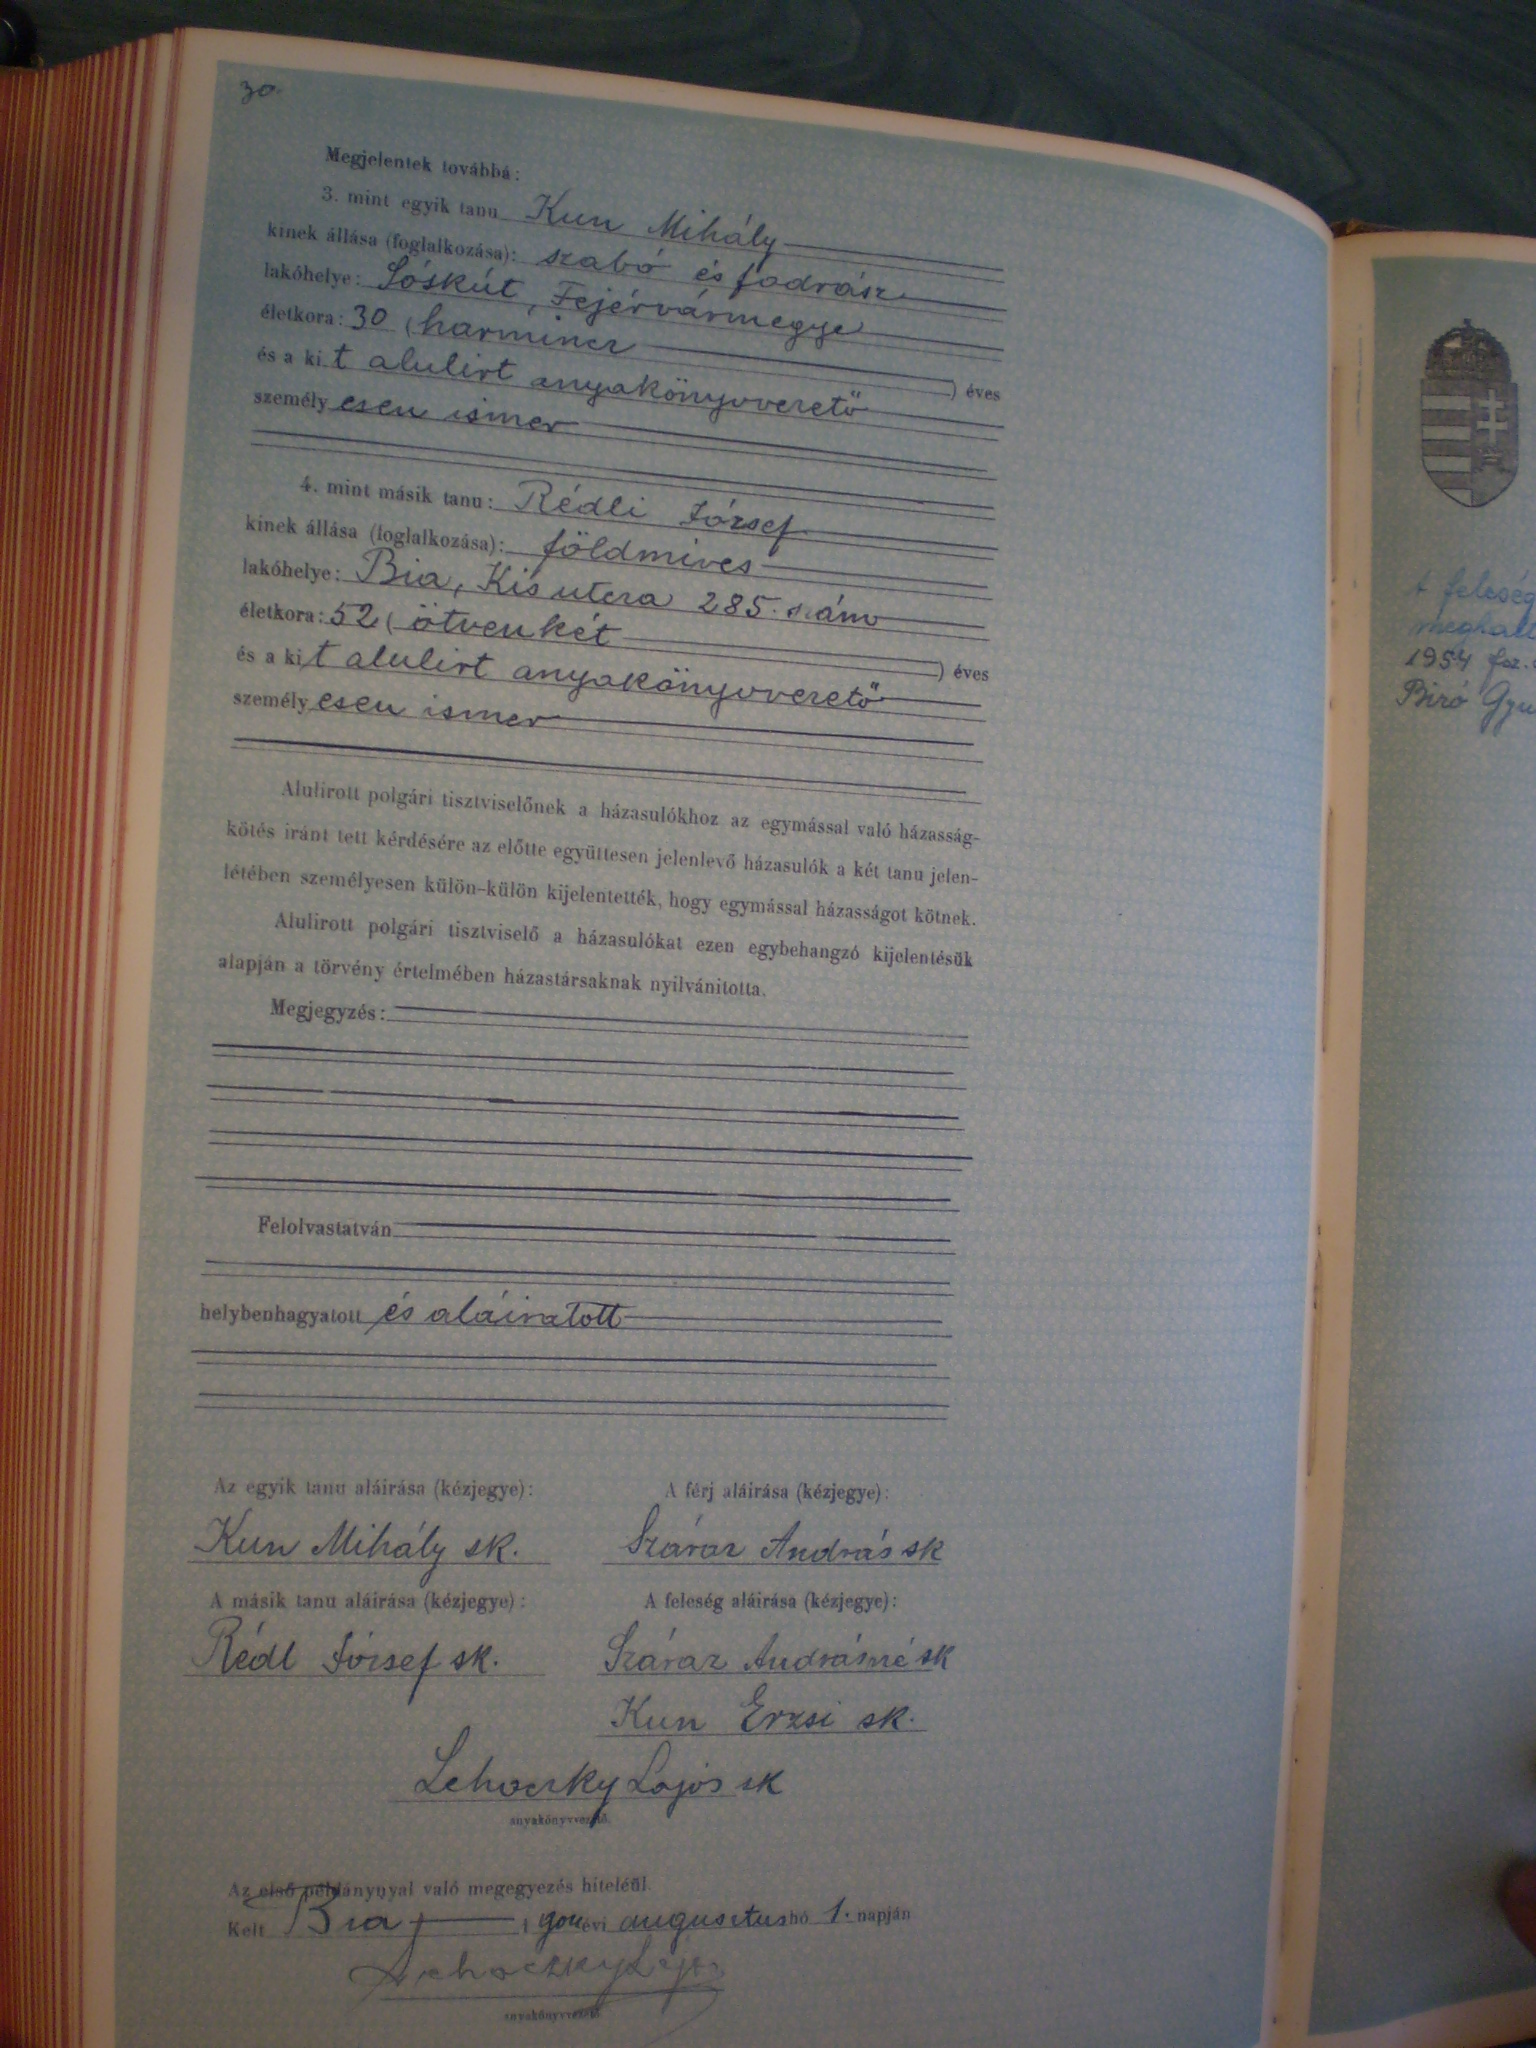 30.
Megjelentek továbbá:
3. mint egyik tanu Kun Mihály
kinek állása (foglalkozása): szabó és fodrász
lakóhelye: Sóskút, Fejérvármegye
életkora: 30 (harmincz ) éves
és a ki t alulirt anyakönyvvezető
személy esen ismer
4. mint másik tanu: Rédli József
kinek állása (foglalkozása): földmives
lakóhelye: Bia, Kis utcza 285. szám
életkora: 52 (ötvenkét ) éves
és a ki t alulirt anyakönyvvezető
személy esen ismer
Alulirott polgári tisztviselőnek a házasulókhoz az egymással való házasság-
kötés iránt tett kérdésére az előtte együttesen jelenlevő házasulók a két tanu jelen-
létében személyesen külön-külön kijelentették, hogy egymással házasságot kötnek.
Alulirott polgári tisztviselő a házasulókat ezen egybehangzó kijelentésük
alapján a törvény értelmében házastársaknak nyilvánitotta.
Megjegyzés:
Felolvastatván
helybenhagyatott és aláiratott
Az egyik tanu aláirása (kézjegye): A férj aláirása (kézjegye):
Kun Mihály sk. Száraz András sk
A másik tanu aláirása (kézjegye): A feleség aláirása (kézjegye):
Rédl József sk. Száraz Andrásné sk
Kun Erzsi sk.
Lehoczky Lajos sk
anyakönyvvezető.
Az első példánynyal való megegyezés hiteléül.
Kelt Bia, évi augusztus hó 1. napján
Lehoczky Lajos
anyakönyvvezető.
A feleség
meghalt
1954
Biró